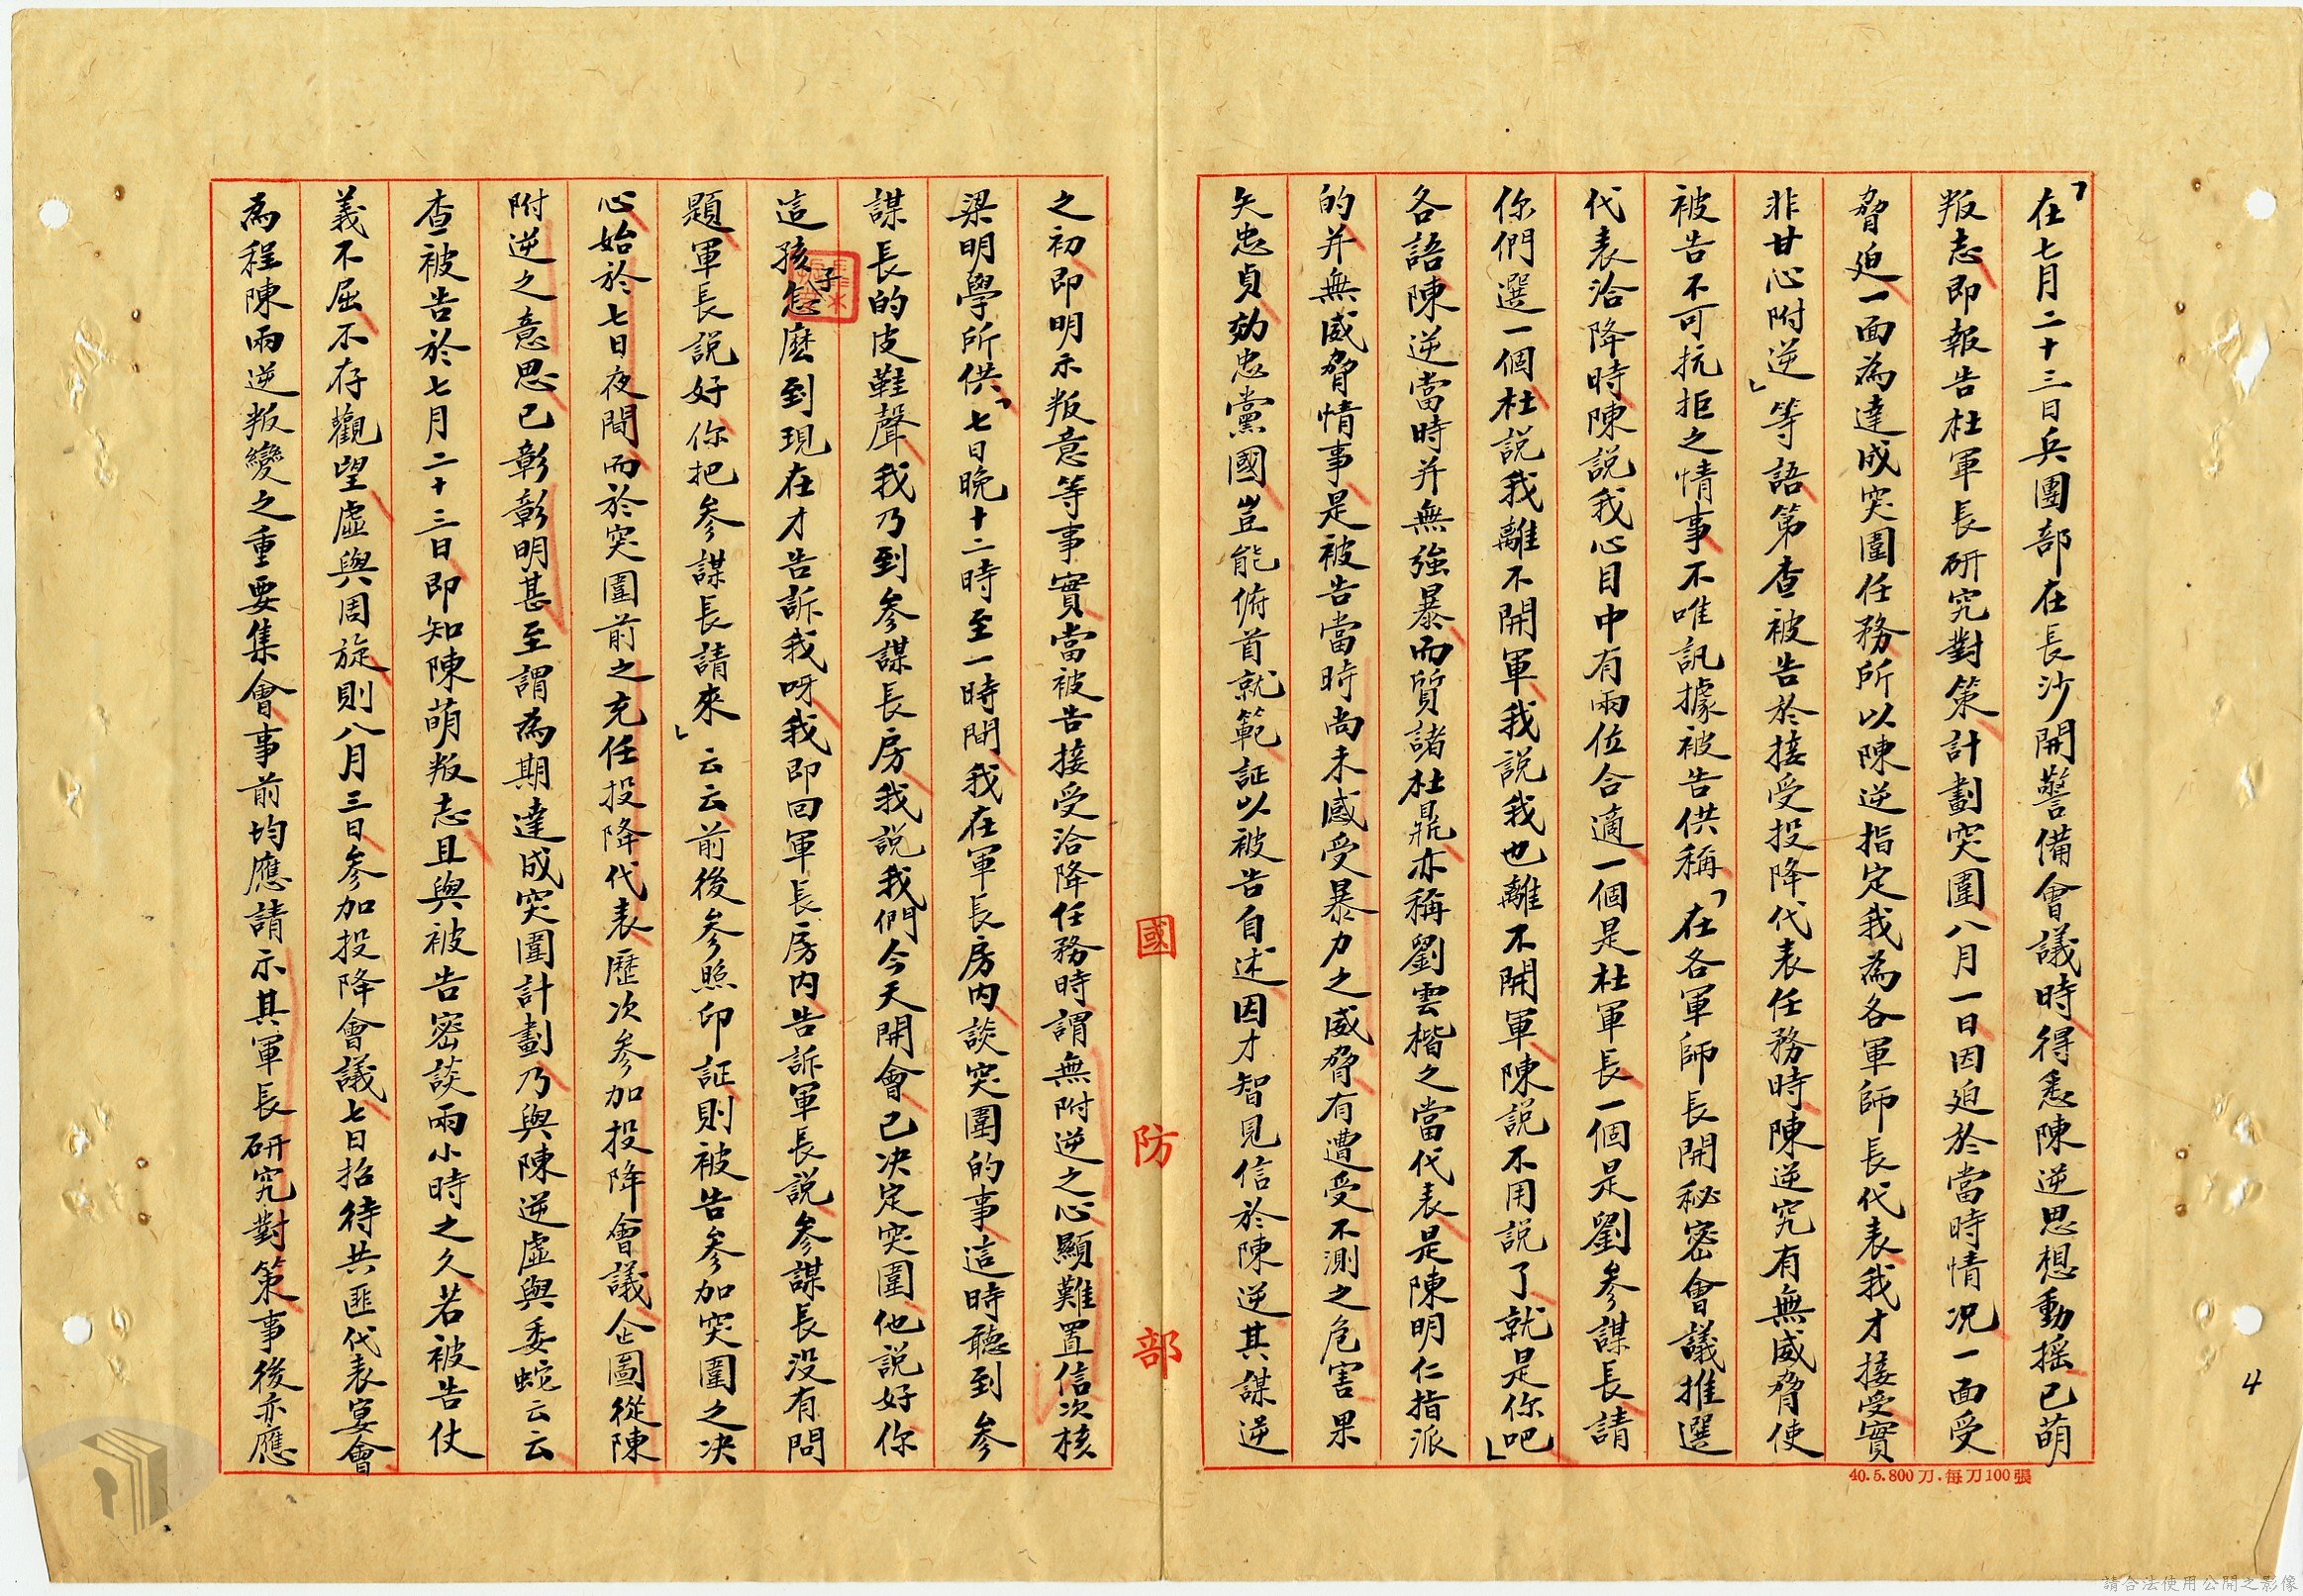 「在七月二十三日兵團部在長沙開警備會議時得悉陳逆思想動搖已萌
叛志即報告杜軍長研究對策計劃突圍八月一日因廹於當時情況一面受
脅廹一面為達成突圍任務所以陳逆指定我為各軍師長代表我才接受實
非甘心附逆」等語第查被告於接受投降代表任務時陳逆究有無威脅使
被告不可抗拒之情事不唯訊據被告供稱「在各軍師長開秘密會議推選
代表洽降時陳說我心目中有兩位合適一個是杜軍長一個是劉參謀長請
你們選一個杜說我離不開軍我說我也離不開軍陳說不用說了就是你吧」
各語陳逆當時并無強暴而質諸杜鼎亦稱劉雲楷之當代表是陳明仁指派
的并無威脅情事是被告當時尚未感受暴力之威脅有遭受不測之危害果
矢忠貞効忠黨國豈能俯首就範証以被告自述因才智見信於陳逆其謀逆
之初即明示叛意等事實當被告接受洽降任務時謂無附逆之心顯難置信次核
梁明學所供「七日晚十二時至一時間我在軍長房內談突圍的事這時聽到參
謀長的皮鞋聲我乃到參謀長房我說我們今天開會已決定突圍他說好你
這孩子怎麼到現在才告訴我呀我即回軍長房內告訴軍長說參謀長沒有問
題軍長說好你把參謀長請來」云云前後參照印証則被告參加突圍之決
心始於七日夜間而於突圍前之充任投降代表歷次參加投降會議企圖從陳
附逆之意思已彰彰明甚至謂為期達成突圍計劃乃與陳逆虛與委蛇云云
查被告於七月二十三日即知陳萌叛志且與被告密談兩小時之久若被告仗
義不屈不存觀望虛與周旋則八月三日參加投降會議七日招待共匪代表宴會
為程陳兩逆叛變之重要集會事前均應請示其軍長研究對策事後亦應
國防部
40.5.800刀.每刀100張
4
請合法使用公開之影像